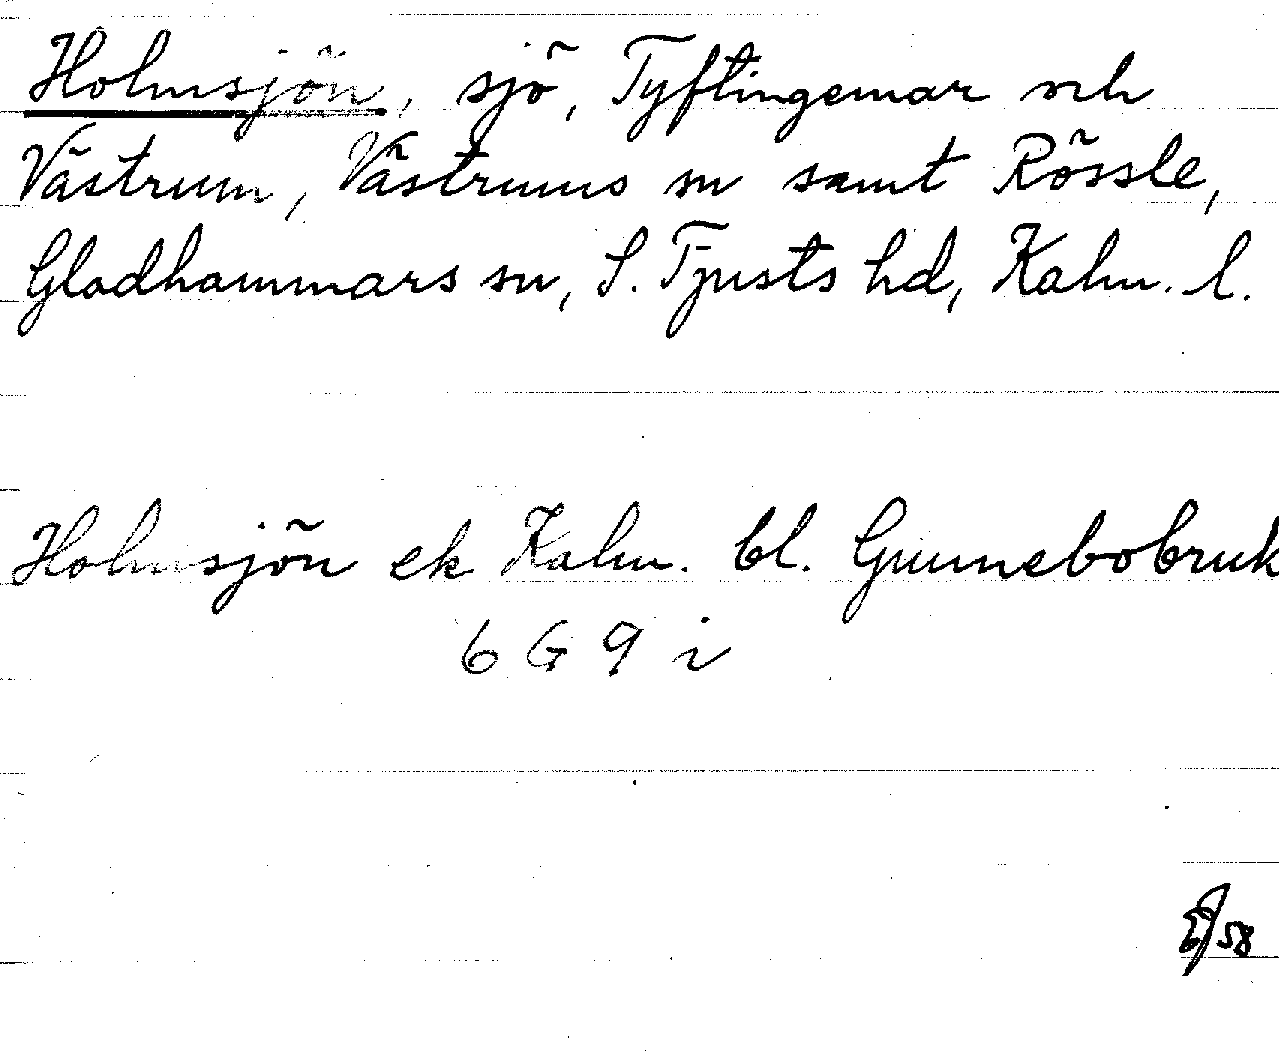 Holmsjön, sjö, Tyftingemar och
Västrum, Västrums sn samt Rössle,
Gladhammars sn, S. Tjusts hd, Kalm. l.
Holmsjön ek Kalm. bl. Gunnebobruk
6 G 9 i
58